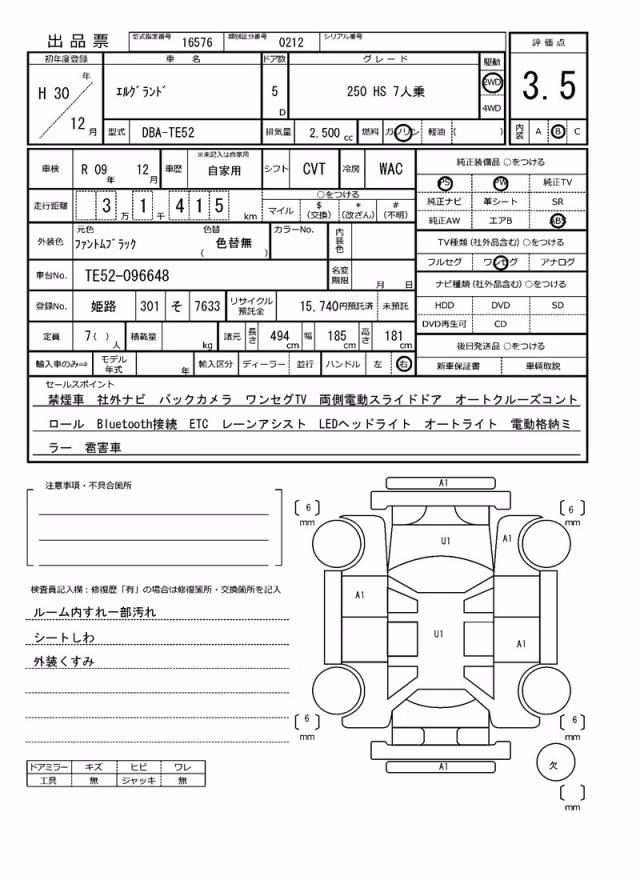 出品票 型式指定番号 16576 類別区分番号 0212 シリアル番号
初年度登録 車 名 ドア数 グレード 駆動 評価点
H 30 年 12 月 エルグランド 5 D 250 HS 7人乗 2WD 4WD 3.5
型式 DBA-TE52 排気量 2,500 cc 燃料 ガソリン 軽油 ( ) 内装 A B C
車検 R 09 年 12 月 車歴 ※未記入は自家用 自家用 シフト CVT 冷房 WAC 純正装備品 ○をつける
PS PW 純正TV
走行距離 3 万 1 千 4 1 5 km ○をつける 純正ナビ 革シート SR
マイル $ (交換) * (改ざん) # (不明) 純正AW エアB ABS
外装色 元色 ファントムブラック 色替 ( 色替無 ) カラーNo. 内装色 TV種類 (社外品含む) ○をつける
フルセグ ワンセグ アナログ
車台No. TE52-096648 名変期限 月 日 ナビ種類 (社外品含む) ○をつける
登録No. 姫路 301 そ 7633 リサイクル預託金 15,740円預託済 未預託 HDD DVD SD
DVD再生可 CD
定員 7( ) 人 積載量 kg 諸元 長さ 494 cm 幅 185 cm 高さ 181 cm 後日発送品 ○をつける
輸入車のみ⇒ モデル年式 年 輸入区分 ディーラー 並行 ハンドル 左 右 新車保証書 車輌取説
セールスポイント
禁煙車 社外ナビ バックカメラ ワンセグTV 両側電動スライドドア オートクルーズコント
ロール Bluetooth接続 ETC レーンアシスト LEDヘッドライト オートライト 電動格納ミ
ラー 雹害車
注意事項・不具合箇所
検査員記入欄：修復歴「有」の場合は修復箇所・交換箇所を記入
ルーム内すれ一部汚れ
シートしわ
外装くすみ
ドアミラー キズ ヒビ ワレ
工具 無 ジャッキ 無
A1
6 mm 6 mm
U1 A1
A1
U1 A1
6 mm 6 mm
A1 欠
mm